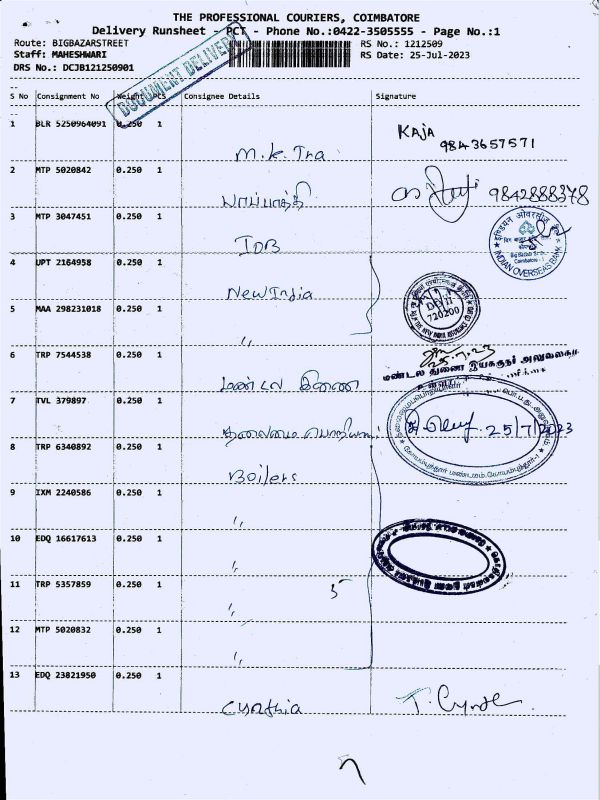 THE PROFESSIONAL COURIERS, COIMBATORE
Delivery Runsheet - PCT - Phone No.:0422-3505555 - Page No.:1
Route: BIGBAZARSTREET RS No.: 1212509
Staff: MAHESHWARI RS Date: 25-Jul-2023
DRS No.: DCJB121250901
DOCUMENT DELIVERY
S No Consignment No Weight PCS Consignee Details Signature
1 BLR 5250964091 0.250 1
M.K. Tra KAJA
9843657571
2 MTP 5020842 0.250 1
9842888378
3 MTP 3047451 0.250 1
IOB
INDIAN OVERSEAS BANK
4 UPT 2164958 0.250 1
New India
5 MAA 298231018 0.250 1
720200
〃
6 TRP 7544538 0.250 1
25.7.23
மண்டல துணை இயக்குநர் அலுவலகம்
மண்டல இணை
7 TVL 379897 0.250 1
தலைமை பொறியா 25/7/2023
8 TRP 6340892 0.250 1
Boilers
9 IXM 2240586 0.250 1
〃
10 EDQ 16617613 0.250 1
〃
11 TRP 5357859 0.250 1
5
〃
12 MTP 5020832 0.250 1
〃
13 EDQ 23821950 0.250 1
Cynthia T. Cynth